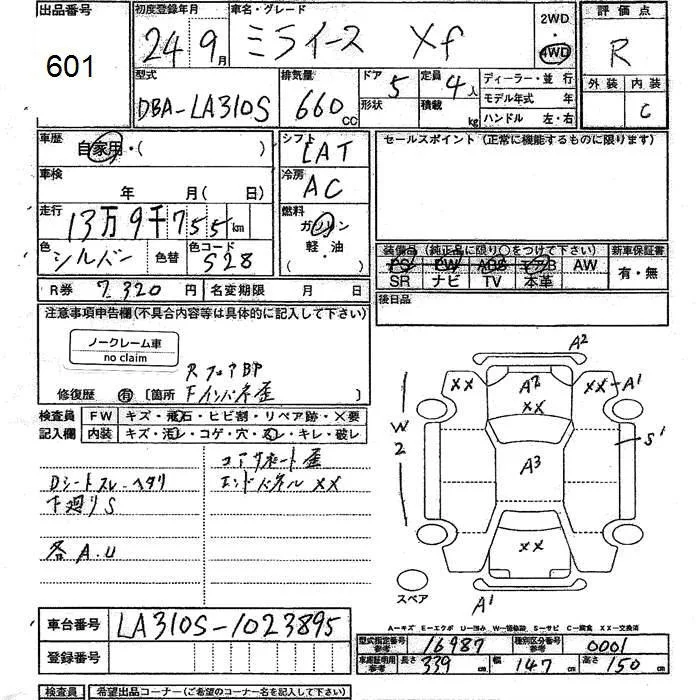 出品番号 初度登録年月 車名・グレード 2WD・4WD 評価点
601 24年9月 ミライース Xf R
型式 排気量 ドア 5 定員 4人 ディーラー・並行 外装 内装
DBA-LA310S 660cc 形状 積載 kg モデル年式 年 C
ハンドル 左・右
車歴 自家用・( ) シフト LAT セールスポイント (正常に機能するものに限ります)
車検 年 月( 日) 冷房 AC
走行 13万9千755km 燃料 ガソリン・軽油 ( )
色 シルバー 色替 色コード S28
装備品 (純正品に限り○をつけて下さい) 新車保証書
PS PW ABS エアB AW 有・無
SR ナビ TV 本革
R券 7320円 名変期限 月 日 後日品
注意事項申告欄(不具合内容等は具体的に記入して下さい)
ノークレーム車
no claim
修復歴 有 [箇所 Fインパネ歪 ]
検査員 FW キズ・飛石・ヒビ割・リペア跡・X要
記入欄 内装 キズ・汚レ・コゲ・穴・スレ・キレ・破レ
コアサポート歪
Dシートスレ・ヘタリ エンドパネルXX
下廻りS
各A.U
A2
XX A2 XX-A1
XX
W2 S1
A3
XX
スペア A1
A-キズ E-エクボ U-凹み W-補修跡 S-サビ C-腐食 XX-交換済
車台番号 LA310S-1023895
登録番号
型式指定番号 参考 16987 種別区分番号 参考 0001
車庫証明用 参考 長さ 339cm 幅 147cm 高さ 150cm
検査員 希望出品コーナー(ご希望のコーナー名を記入して下さい)